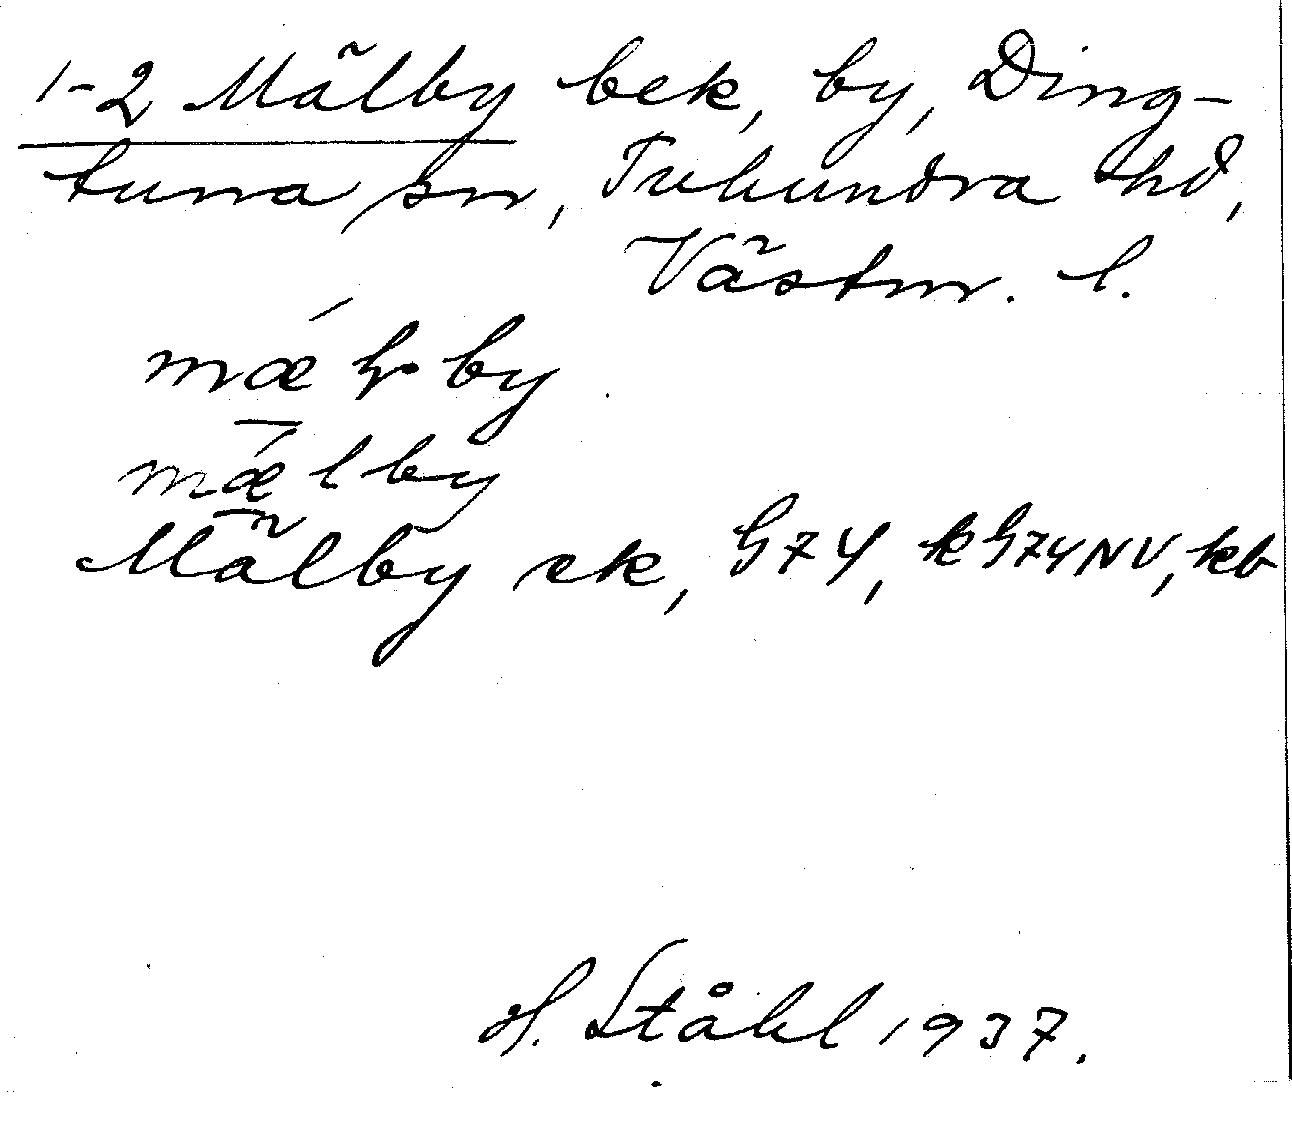 1-2 Mälby bek, by, Ding-
tuna sn, Tuhundra hd,
Västm. l.
by
mælby
Mälby ek, G74, kG74NV, kb
H. Ståhl 1937.